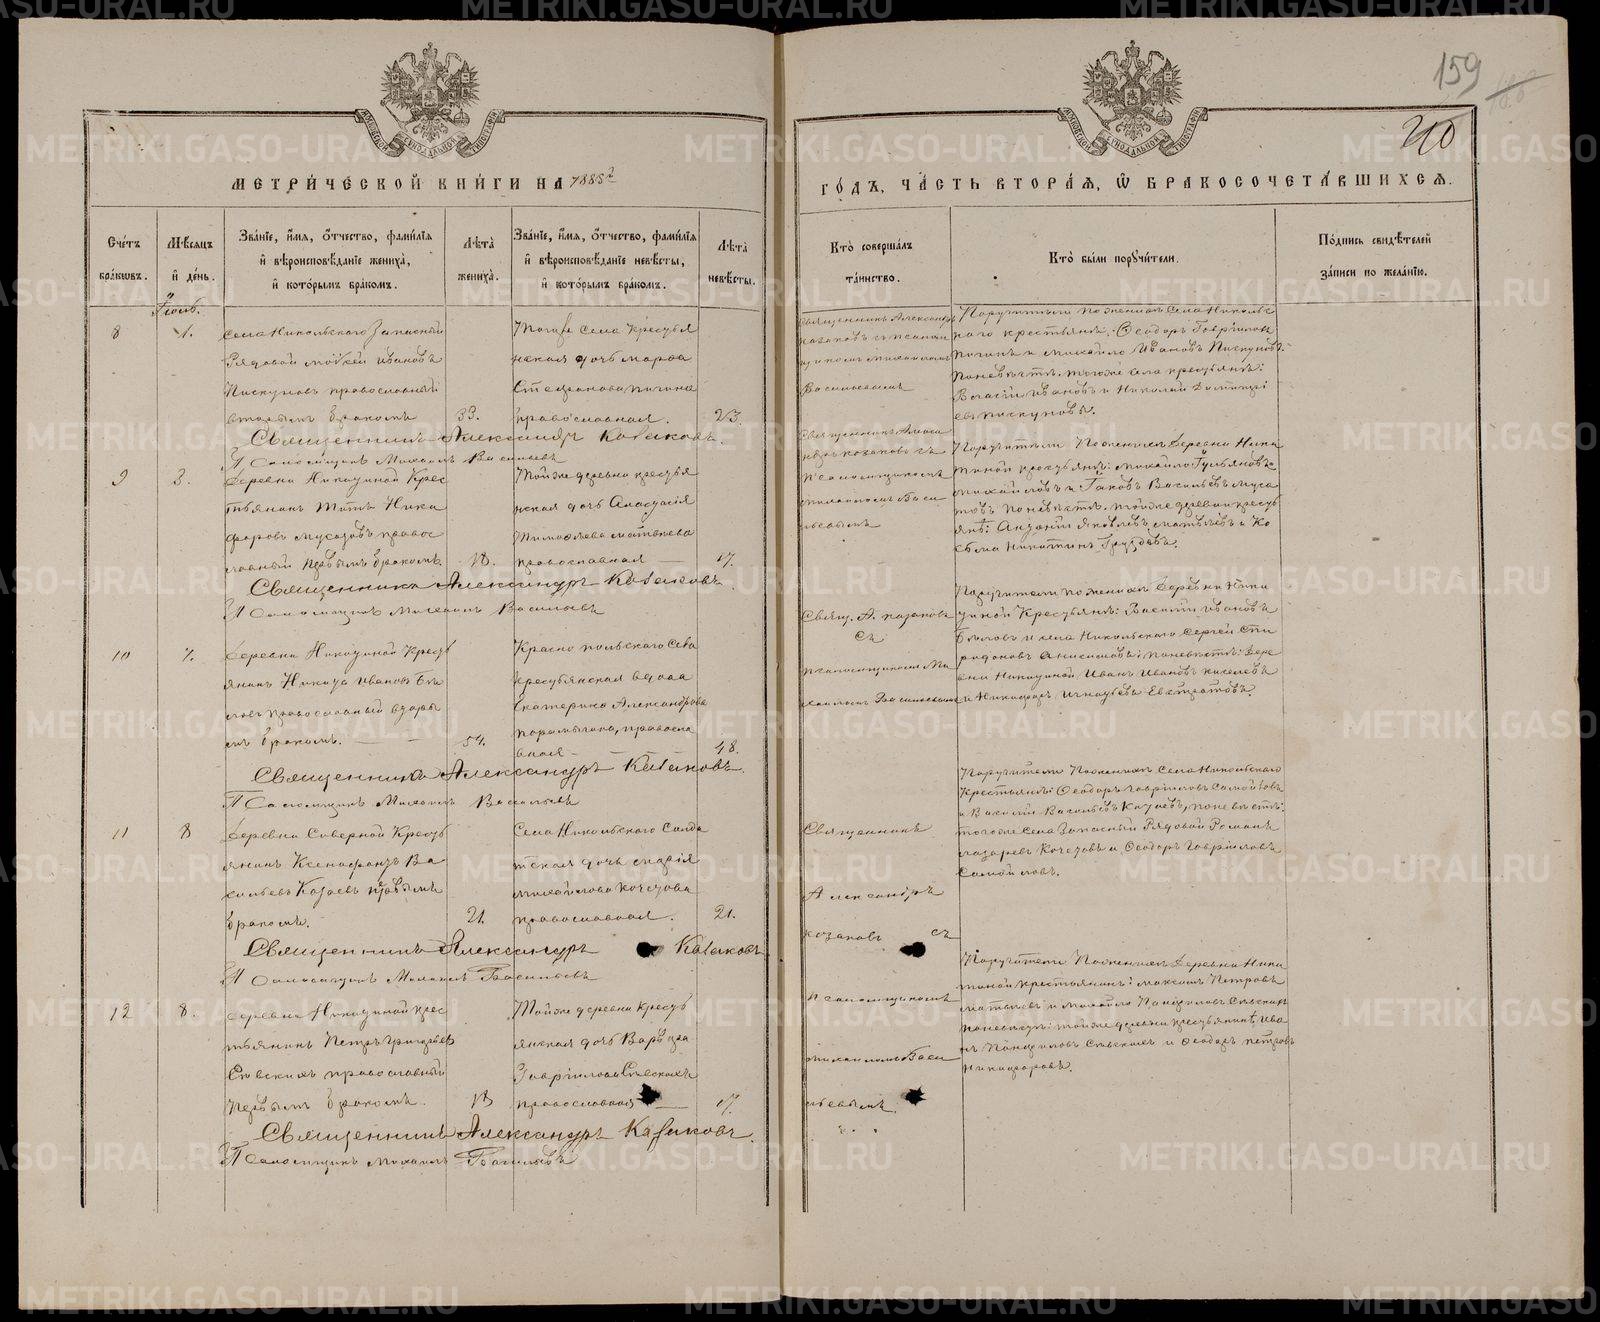 159
210
МЕТРИЧЕСКОЙ КНИГИ НА 1885 ГОДЪ, ЧАСТЬ ВТОРАЯ, Ѡ БРАКОСОЧЕТАВШИХСЯ.
Счетъ браковъ.
Мѣсяцъ и день.
Званіе, имя, отчество, фамилія и вѣроисповѣданіе жениха, и которымъ бракомъ.
Лѣта жениха.
Званіе, имя, отчество, фамилія и вѣроисповѣданіе невѣсты, и которымъ бракомъ.
Лѣта невѣсты.
Кто совершалъ таинство.
Кто были поручители.
Подпись свидѣтелей записи по желанію.
8
1.
Села Никольскаго Запасный
Рядовой Моѵсей Ивановъ
Пискуновъ православный
вторымъ бракомъ
33.
Тогоже села крестья
нская дочь Марѳа
Стефанова
православная.
23.
Священникъ Александръ
Казаковъ съ псалом
щикомъ Михаиломъ
Васильевымъ
Поручители по женихѣ села Николь
скаго крестьяне: Ѳеодоръ Гавріиловъ
и Михайло Ивановъ Пискуновъ
по невѣстѣ: тогоже села крестьяне:
Ивановъ и Николай Дометі
евъ Пискуновы.
Священникъ Александръ Казаковъ.
Псаломщикъ Михаилъ Васильевъ
9
3.
Деревни Никитиной Крес
тьянинъ Титъ Ники
форовъ Мусатовъ правос
лавный первымъ бракомъ.
18.
Тойже деревни крестья
нская дочь Анастасія
Тимоѳеева Матвѣева
православная
17.
Священникъ Алекса
ндръ Казаковъ съ
псаломщикомъ
Михаиломъ Васи
льевымъ
Поручители по женихѣ деревни Ники
тиной крестьяне: Михайло
Михайловъ и Іаковъ Васильевъ Муса
товъ по невѣстѣ: тойже деревни кресть
яне: Яковлевъ Матвѣевъ и Ко
сьма Никитинъ Груздевъ.
Священникъ Александръ Казаковъ
Псаломщикъ Михаилъ Васильевъ
10
7.
Деревни Никитиной Кресть
янинъ Никита Ивановъ Бѣ
ловъ православный вторы
мъ бракомъ.
54.
Краснопольскаго села
крестьянская вдова
Екатерина Александрова
православ
вная
48.
Свящ. А. Казаковъ
съ
псаломщикомъ Ми
хаиломъ Васильевымъ
Поручители по женихѣ деревни Ники
тиной Крестьяне: Василій Ивановъ
Бѣловъ и села Никольскаго Сергей Спи
ридоновъ Анисимовъ; по невѣстѣ: Дере
вни Никитиной Иванъ Ивановъ Киселевъ
и Никифоръ Игнатьевъ Евстратовъ.
Священникъ Александръ Казаковъ.
Псаломщикъ Михаилъ Васильевъ
11
8
Деревни Северной Кресть
янинъ Ксенофонтъ Ва
сильевъ Казаевъ первымъ
бракомъ.
21.
Села Никольскаго Солда
тская дочь Марія
Михайлова Кочетова
православная.
21.
Священникъ
Александръ
Казаковъ съ
псаломщикомъ
Михаиломъ Васи
льевымъ
Поручители по женихѣ села Никольскаго
Крестьяне: Ѳеодоръ Гавріиловъ Самойловъ
и Василій Васильевъ Казаевъ, по невѣстѣ:
тогоже села Запасный Рядовой Романъ
Лазаревъ Кочетовъ и Ѳеодоръ Гавріиловъ
Самойловъ.
Священникъ Александръ Казаковъ
Псаломщикъ Михаилъ Васильевъ
12
8.
Деревни Никитиной крес
тьянинъ Петръ Григорьевъ
Сѣвскихъ православный
первымъ бракомъ.
18
Тойже деревни кресть
янская дочь Варвара
Гавріилова Сѣвскихъ
православная
17.
Поручители по женихѣ деревни Ники
тиной крестьянинъ: Максимъ Петровъ
Матвѣевъ и Михайло Панфиловъ Сѣвскихъ
по невѣстѣ: тойже деревни крестьянинъ Ива
нъ Панфиловъ Сѣвскихъ и Ѳеодоръ Петровъ
Никифоровъ.
Священникъ Александръ Казаковъ.
Псаломщикъ Михаилъ Васильевъ
METRIKI.GASO-URAL.RU